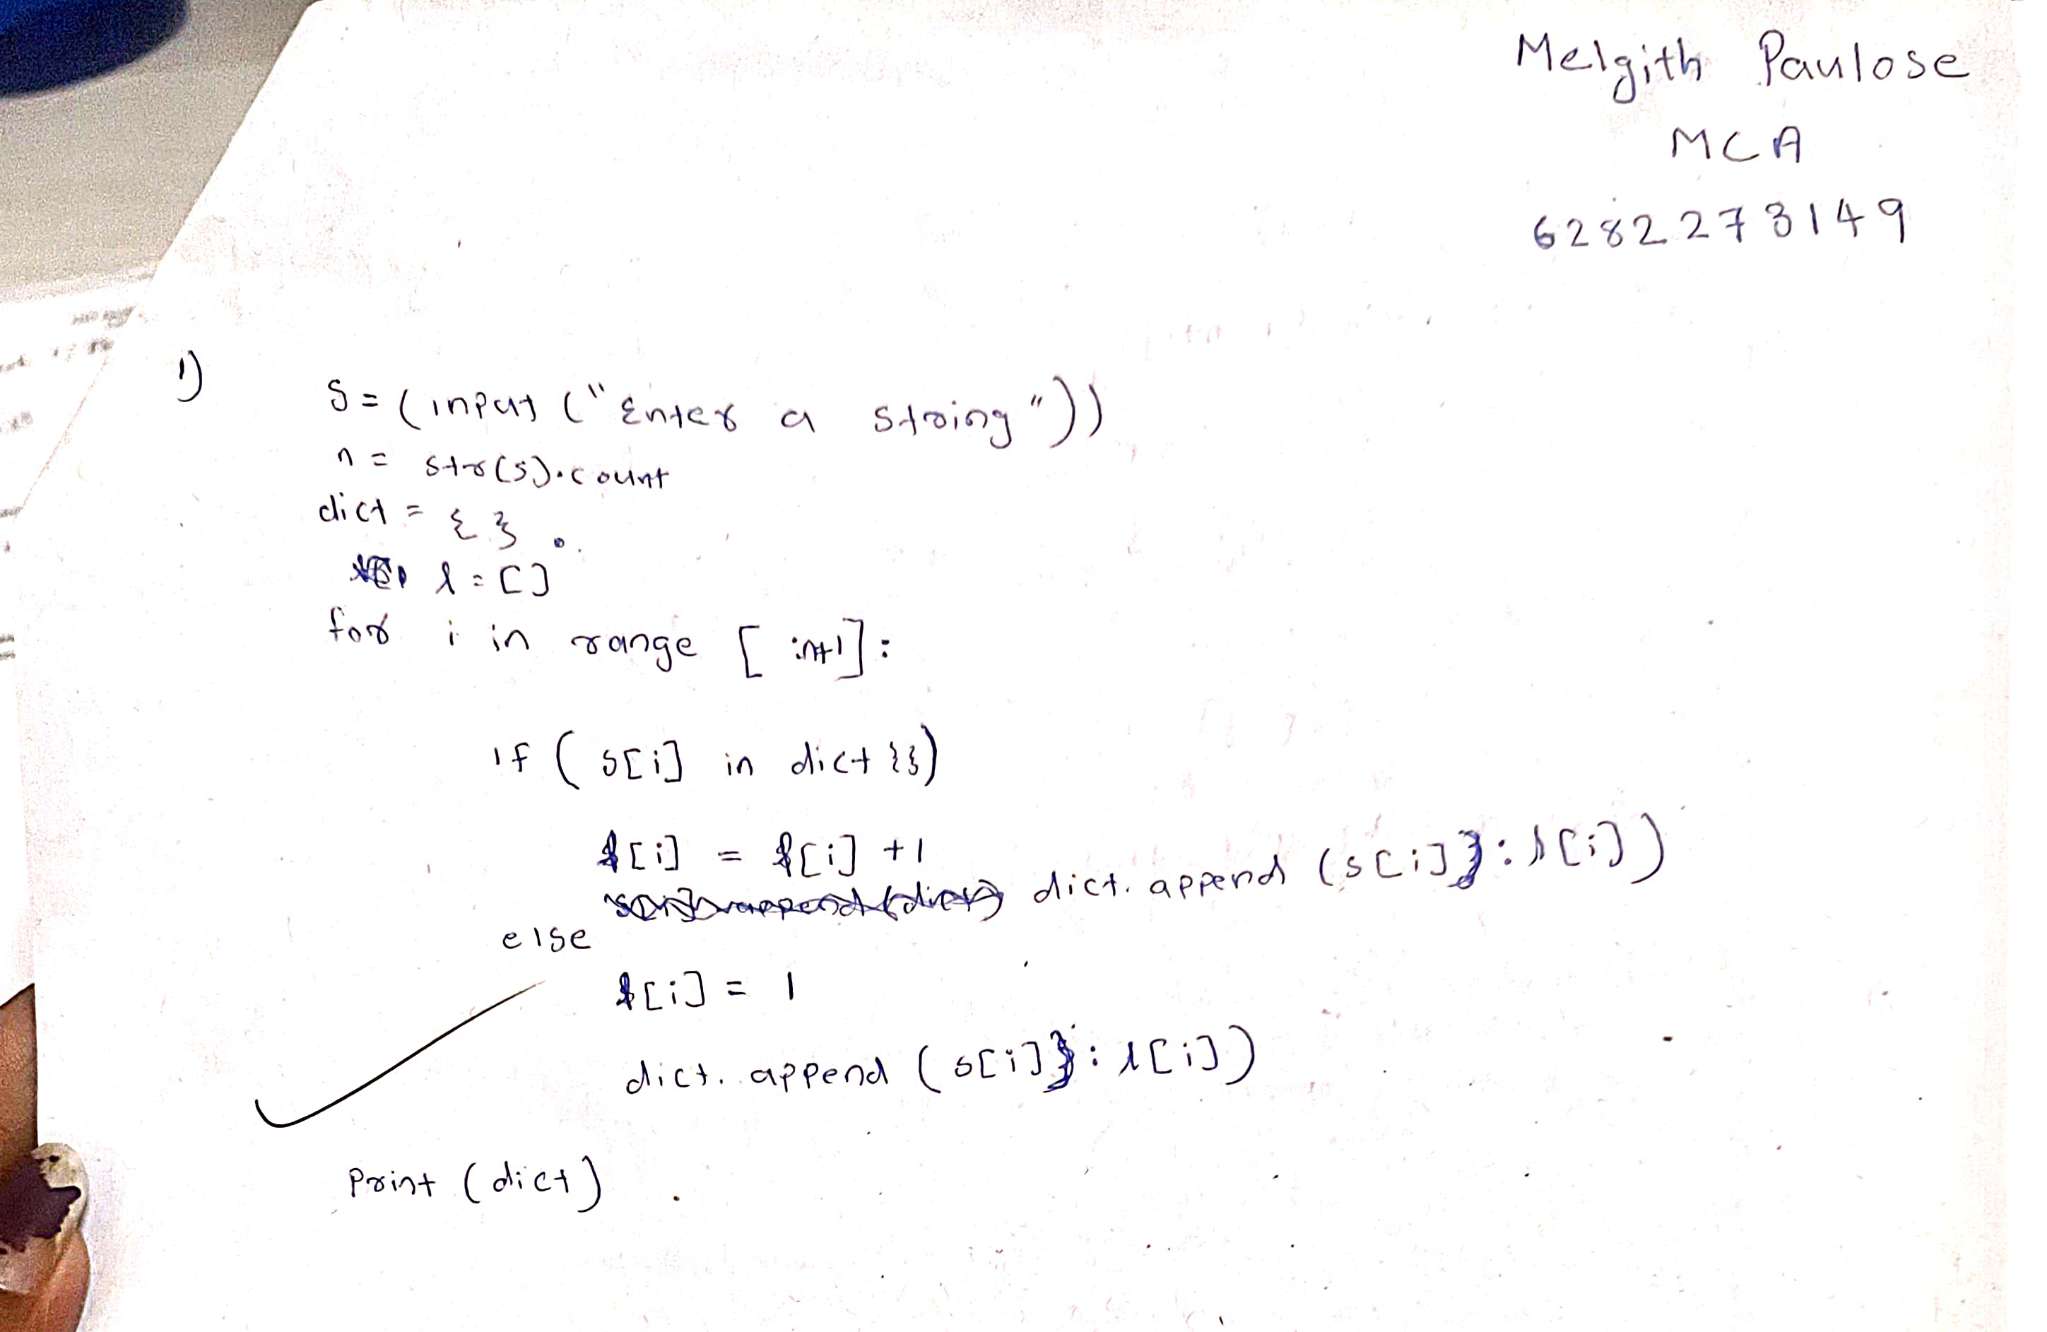 Melgith Paulose
MCA
6282273149
1)
S = (input ("Enter a string"))
n = str(s).count
dict = { }
l = []
for i in range [ n+1]:
if ( s[i] in dict {})
l[i] = l[i] +1
dict. append (s[i] : l[i])
else
l[i] = 1
dict. append ( s[i] : l[i])
Print (dict)